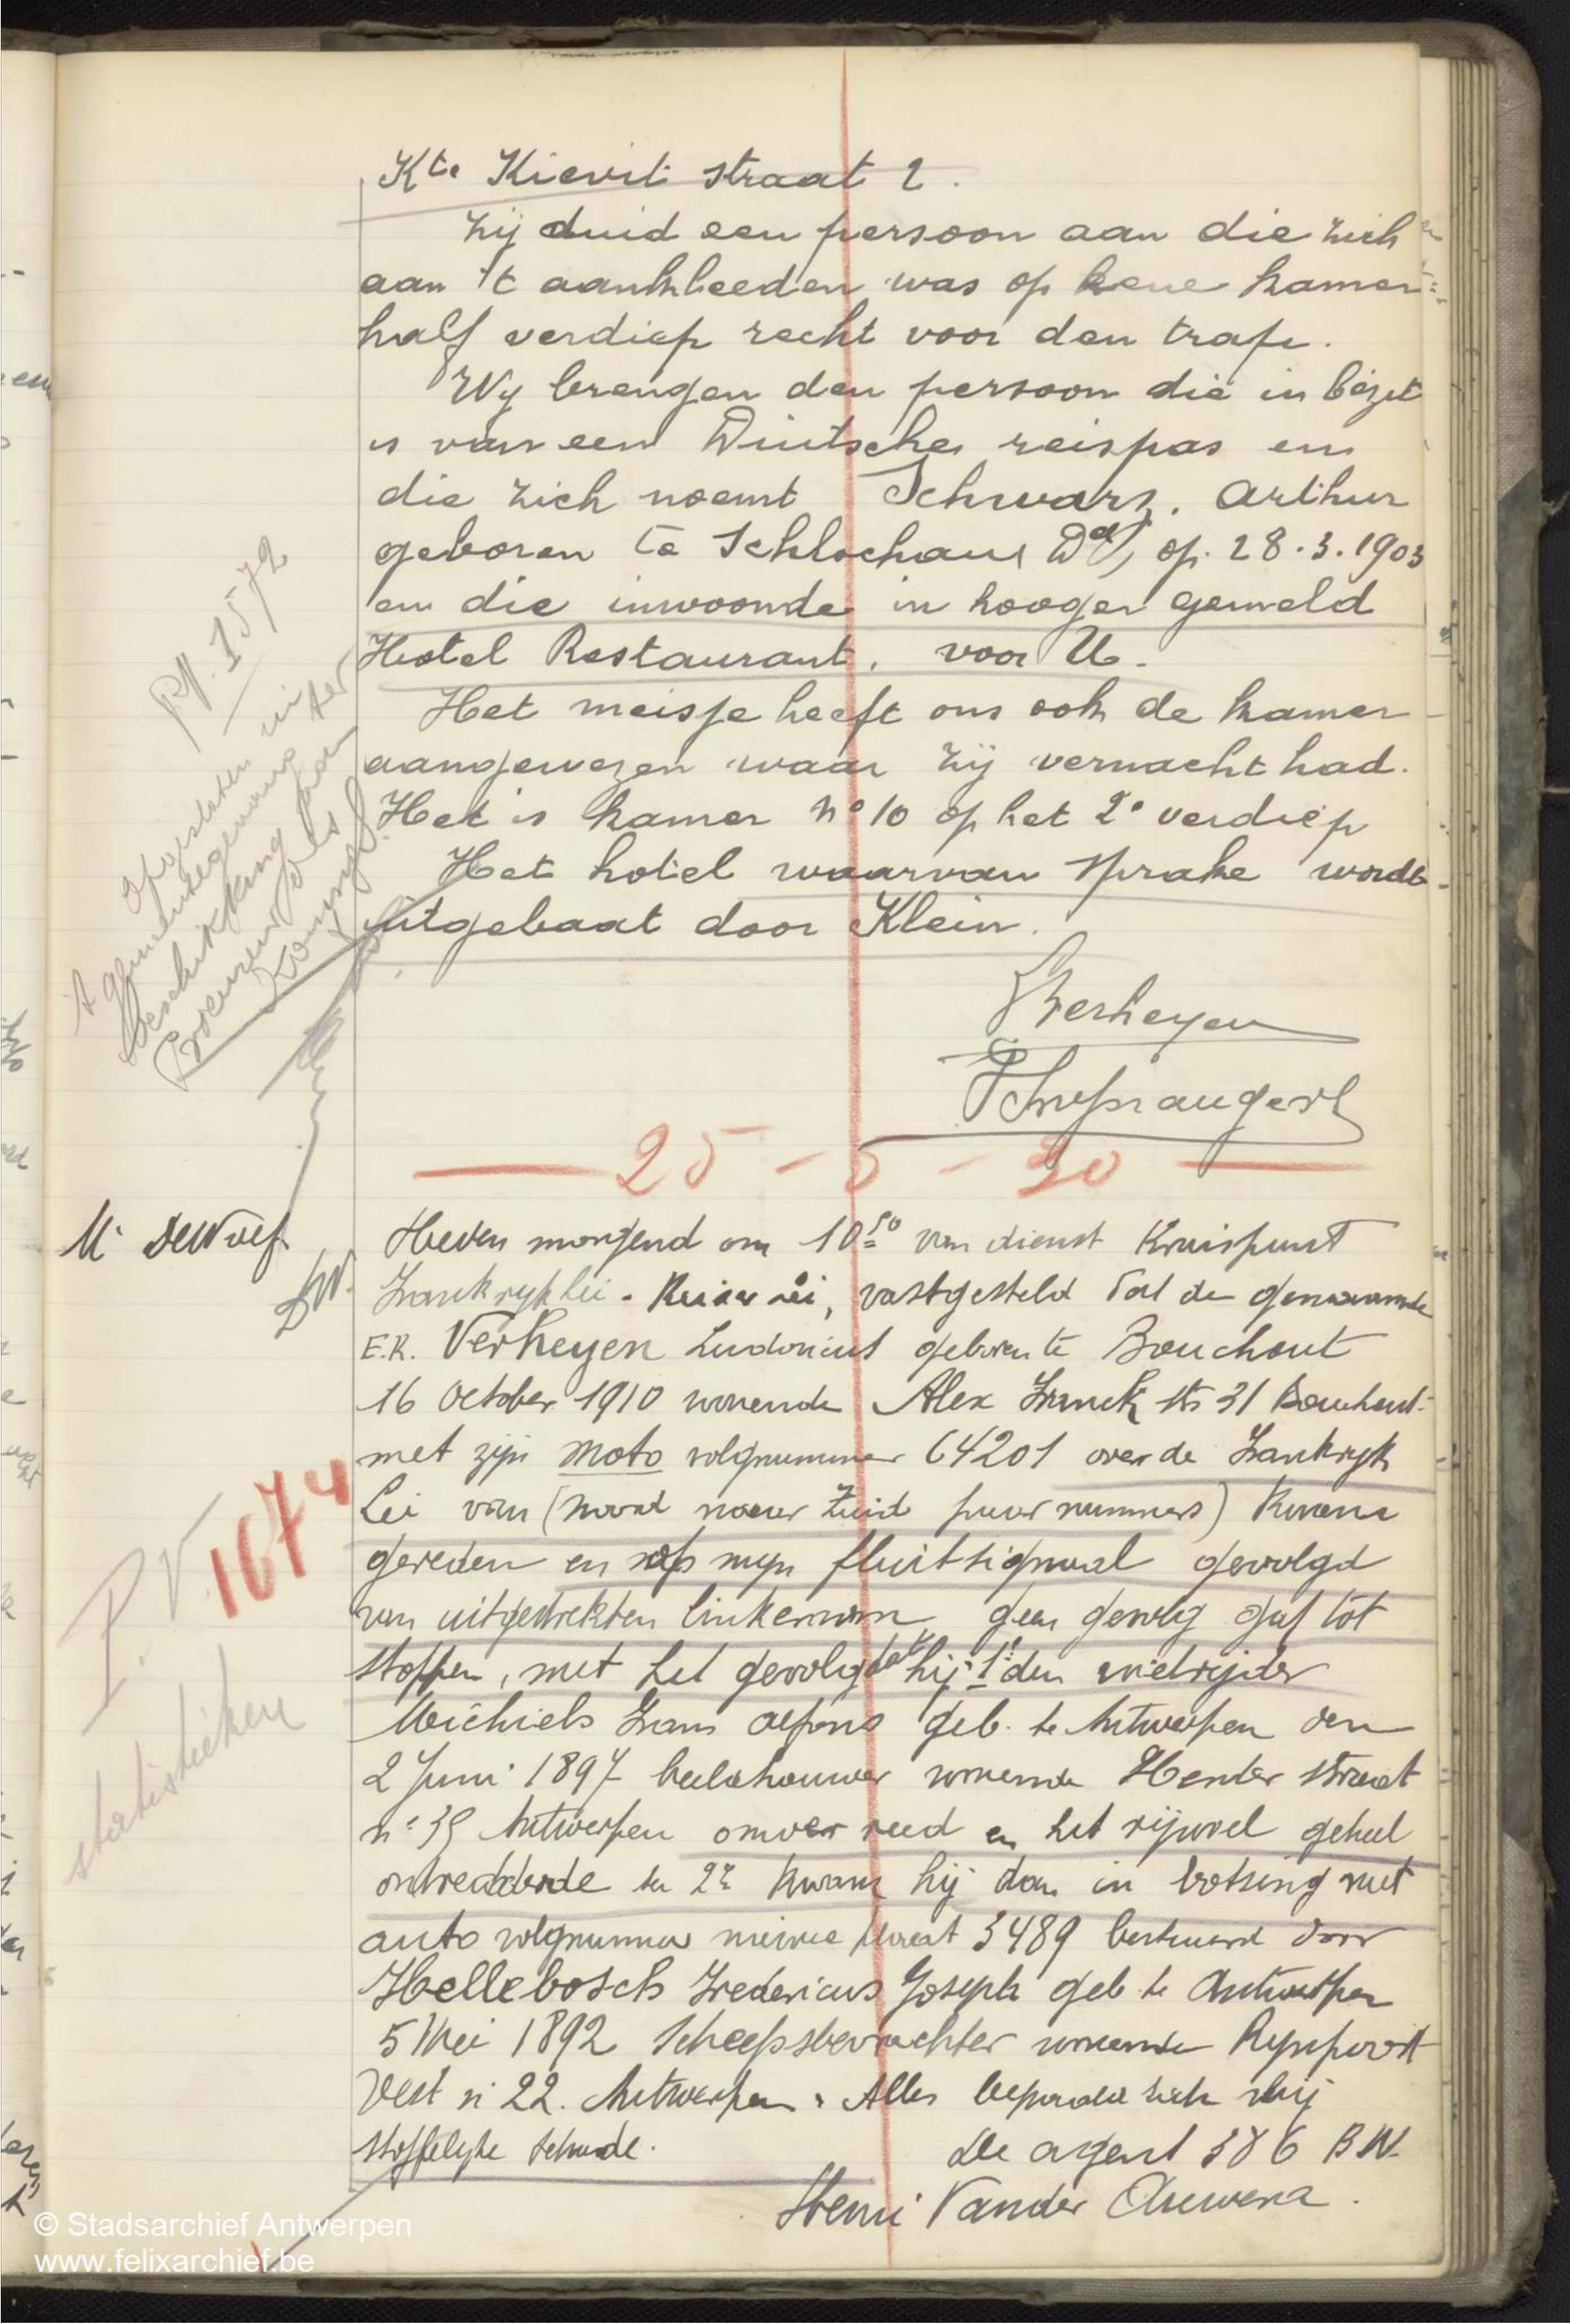 Kte Kievit straat 2.
Zij duid een persoon aan die zich
aan 't aankleeden was op eene kamer
half verdiep recht voor den trap.
Wy brengen den persoon die in bezit
is van een Duitsche reispas en
die zich noemt Schwarz, Arthur
geboren te Schlochau Dd, op. 28.3.1903
en die inwoonde in hooger gemeld
Hotel Restaurant, voor U.
Het meisje heeft ons ook de kamer
aangewezen waar zij vernacht had.
Het is kamer no 10 op het 2e verdiep
Het hotel waarvan sprake wordt
uitgebaat door Klein.
PV. 1572
opsluiten
beschikking
Procureur des
Konings
Verheyen
25-5-30
Mr DeWolf
DW.
Heden morgend om 10 50 van dienst Kruispunt
Frankryklei - Keiserlei, vastgesteld dat de genaamde
E.R. Verheyen Ludovicus geboren te Bouchout
16 October 1910 wonende Alex Franck str 31 Bouchout
met zijn moto volgnummer 64201 over de Frankryk
Lei van (noord naar Zuid paar nummers) kwam
gereden en op myn fluitsignaal gevolgd
van uitgestrekten linkerarm geen gevolg gaf tot
stoppen, met het gevolg dat hij 1e den wielrijder
Michiels Frans Alfons geb. te Antwerpen den
2 Juni 1897 beeldhouwer wonende straat
n° 39 Antwerpen omver reed en het rijwiel geheel
ontredderde ten 2e kwam hij dan in botsing met
auto volgnummer nieuwe plaat 3489 bestuurd door
Hellebosch Fredericus Joseph geb te Antwerpen
5 Mei 1892 Scheepsbevrachter wonende Rynpoort
Vest n° 22. Antwerpen. Alles beperkte zich bij
stoffelyke schade.
De agent 386 BW.
Henri Vander Auwera.
P.V. 1674
statistieken
© Stadsarchief Antwerpen
www.felixarchief.be